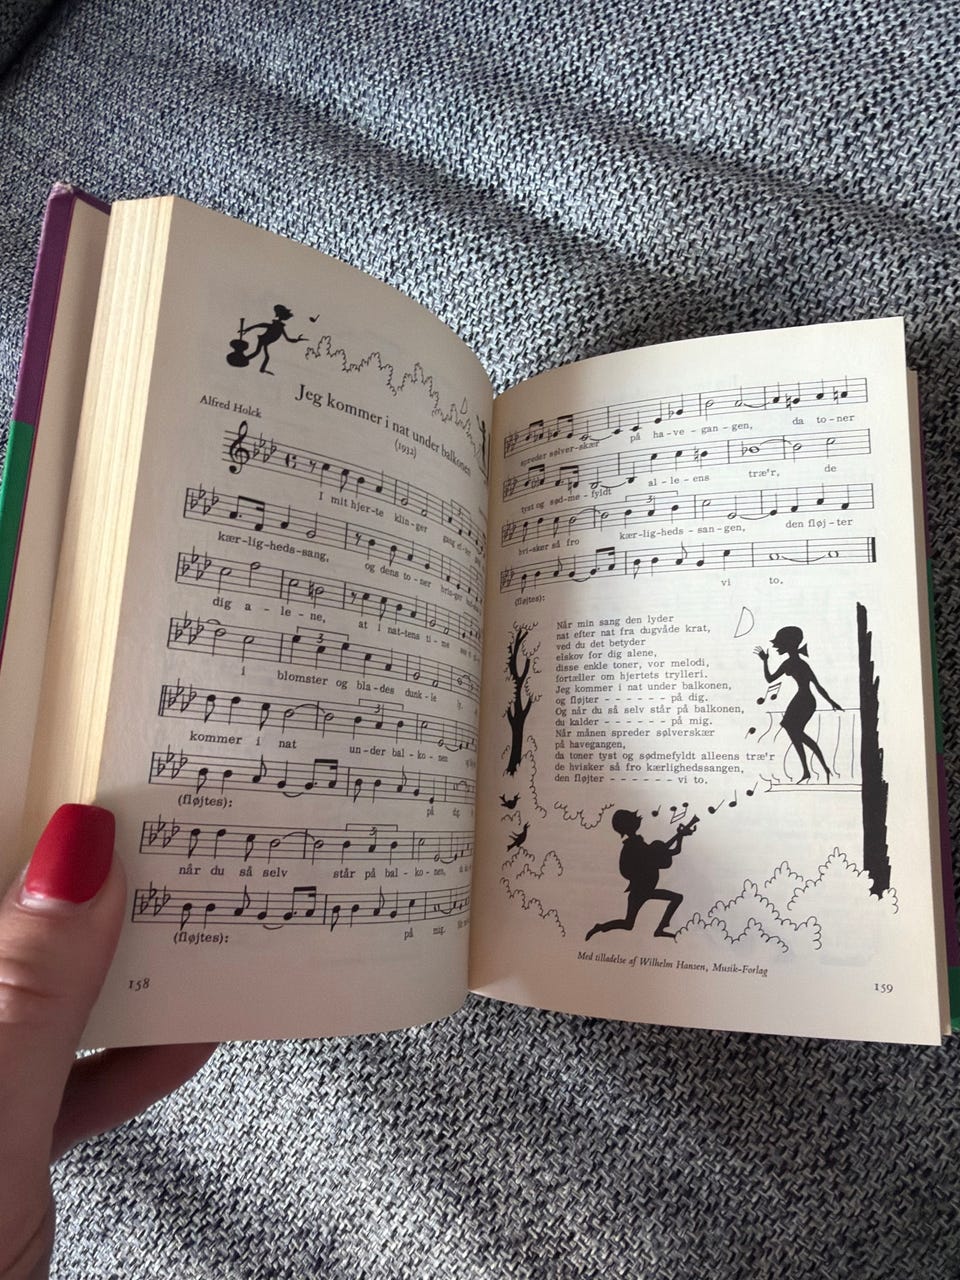 Jeg kommer i nat under balkonen
(1932)
Alfred Holck
I mit hjer-te klin-ger
kær-lig-heds-sang, og dens to-ner
dig a-le-ne, at i nat-tens ti-me
i blomster og bla-des dunk-le
kommer i nat un-der bal-ko-nen
(fløjtes): på dig.
når du så selv står på bal-ko-nen,
(fløjtes): på mig.
158
spreder sølver-skær på ha-ve-gan-gen, da to-ner
tyst og sød-me-fyldt al-le-ens træ'r, de
hvi-sker så fro kær-lig-heds-san-gen, den fløj-ter
(fløjtes): vi to.
Når min sang den lyder
nat efter nat fra dugvåde krat,
ved du det betyder
elskov for dig alene,
disse enkle toner, vor melodi,
fortæller om hjertets trylleri.
Jeg kommer i nat under balkonen,
og fløjter - - - - - - - på dig.
Og når du så selv står på balkonen,
du kalder - - - - - - - på mig.
Når månen spreder sølverskær
på havegangen,
da toner tyst og sødmefyldt alleens træ'r
de hvisker så fro kærlighedssangen,
den fløjter - - - - - - - vi to.
Med tilladelse af Wilhelm Hansen, Musik-Forlag
159